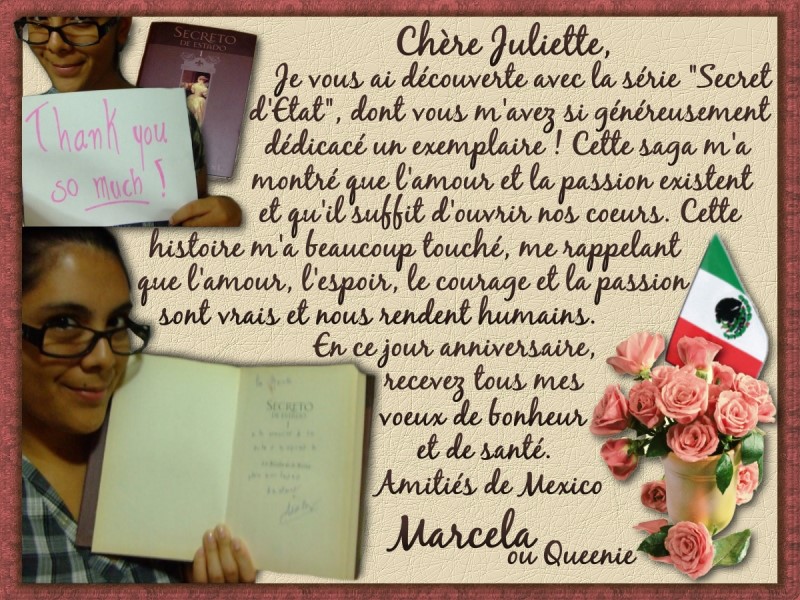 SECRETO
DE ESTADO
I
Thank you
so much!
Chère Juliette,
Je vous ai découverte avec la série "Secret
d'Etat", dont vous m'avez si généreusement
dédicacé un exemplaire ! Cette saga m'a
montré que l'amour et la passion existent
et qu'il suffit d'ouvrir nos coeurs. Cette
histoire m'a beaucoup touché, me rappelant
que l'amour, l'espoir, le courage et la passion
sont vrais et nous rendent humains.
En ce jour anniversaire,
recevez tous mes
voeux de bonheur
et de santé.
Amitiés de Mexico
Marcela
ou Queenie
SECRETO
DE ESTADO
I